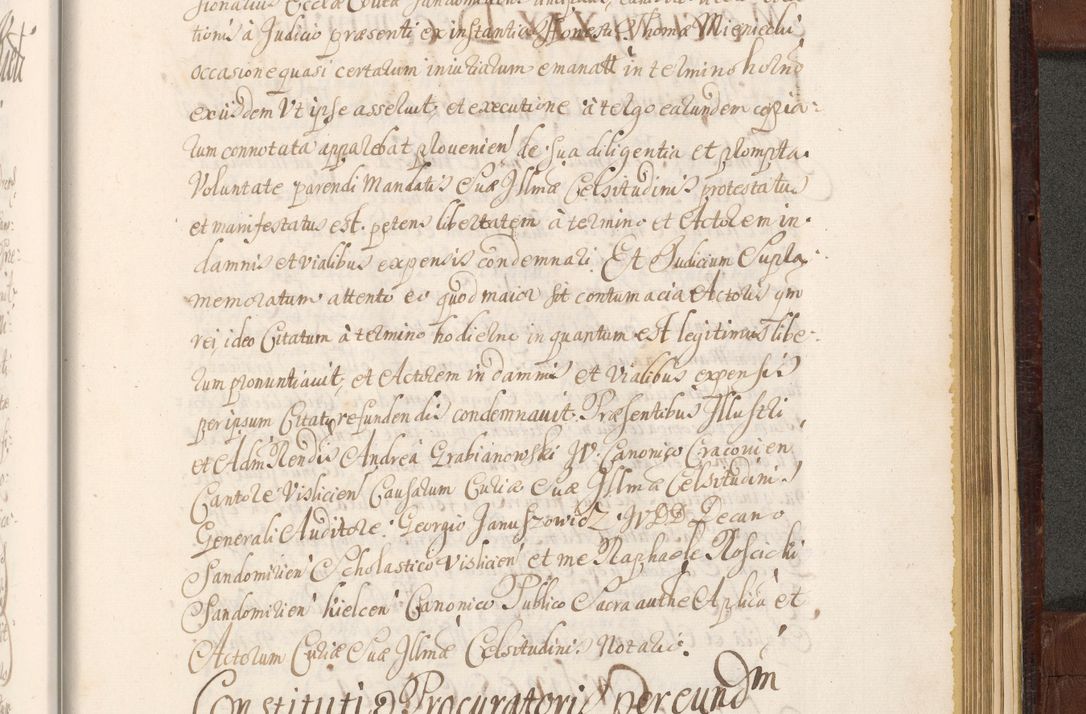 tionis à Judicio præsenti ex instantia Honesti Thomæ Mieniecki
occasione quasi certarum iniuriarum emanatt in termino horno
exiisdem Vt ipse asseruit, et executione à tergo earundem copia-
rum connotata apparebat provenien' de sua diligentia et prompta
Voluntate parendi Mandatis Suæ Jllmæ Celsitudinis protestatus
et manifestatus est. petens libertatem à termino et Actorem in
damnis et vialibus expensis condemnari. Et Judicium Supra
memoratum attento eo quod maior sit contumacia Actoris qm
rei, ideo Citatum à termino hodierno in quantum est legitimus libe-
rum pronuntiavit, et Actorem in damnis et Vialibus expensis
per ipsum Citato refundendis condemnavit. Præsentibus Jllustri
et Adm Rendis Andrea Grabianowski JV. Canonico Cracovien
Cantore Vislicien' Causarum Curiæ Suæ Jllmæ Celsitudinis
Generali Auditore. Georgio Januszowicz JVDD Decano
Sandomirien' Scholastico Vislicien' et me Raphaele Roscicki
Sandomirien' kielcen' Canonico Publico Sacra authe Aplica et
Actorum Curiæ Suæ Jllmæ Celsitudinis Notario.
Constitutio Procuratoris per eundm